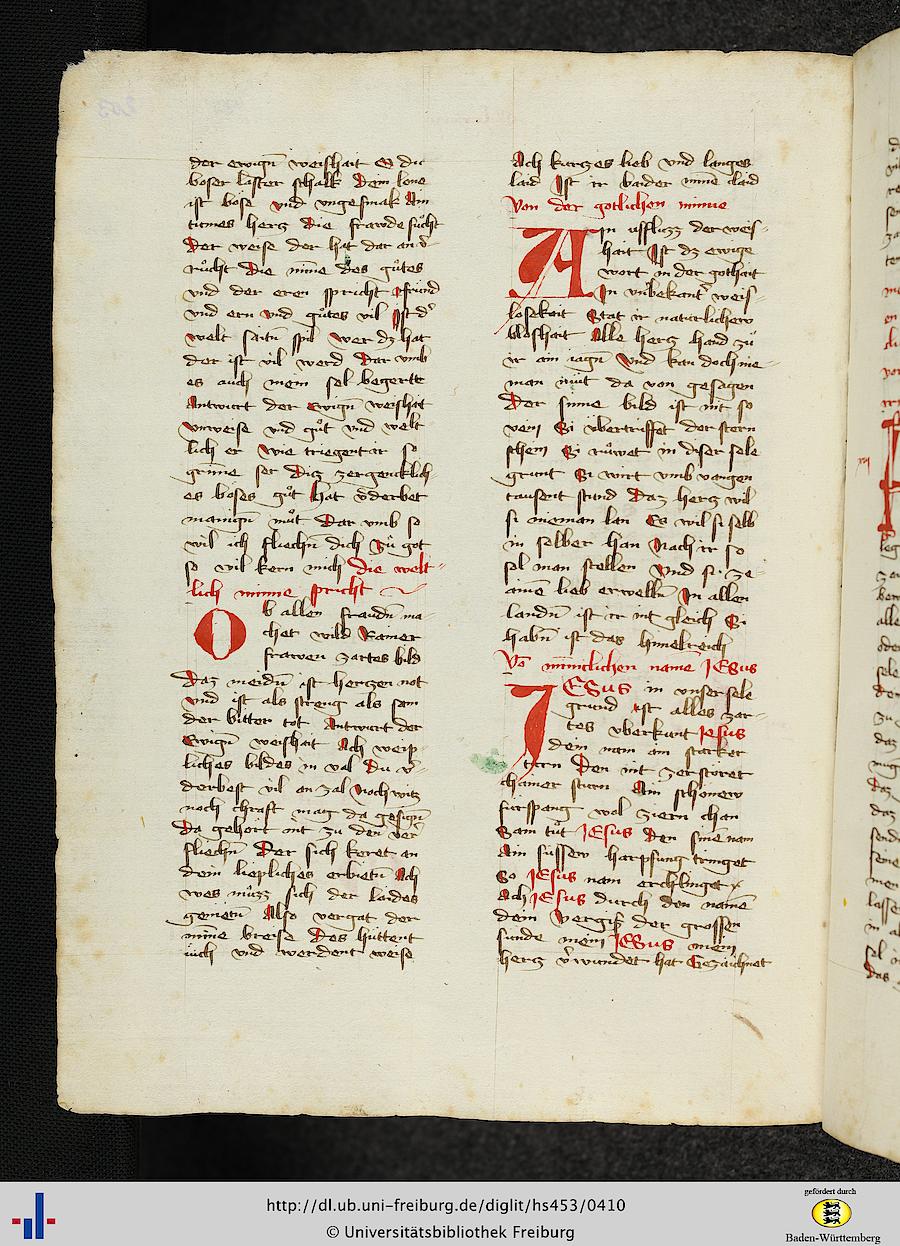 der ewign weishait O du
boser laster schalk Dein lone
ist böss vnd vngesmak Am
tumes herz die frawde sücht
Der weise der hat dar an
rücht Die mine des gütes
vnd der eren spricht frund
vnd ern vnd gütes vil Ist d
welt saitn spil wer dz hat
der ist vil werd Dar vmb
es auch mein sel begerte
Antwurt der Ewign weishait
vnweise vnd güt vnd welt
lich er wie triegent ir so
grime ser Diz zergencklich
es böses güt hat vderbet
manign müt Dar vmb so
wil ich fliechn dich Zü got
so wil kern mich die welt-
lich minne spricht
Ob allen fraudn ma
chet wild Rainer
frawen zartes bild
Daz meidn ist herczen not
vnd ist als streng als sam
der bitter tot Antwurt der
Ewign weishait Ach weip-
liches bildes in val Du v-
derbest vil an zal Noch witz
noch chraft mag da gesign
Da gehört nit zu den ver
fliechn Der sich keret an
dem lieplichs erbietn Ach
wes müzz sich der laides
genietn Also vergat der
mine breise Des hüttent
üich vnd werdent weise
Ach kurzes lieb vnd langes
laid Ist ir baider mine claid
Von der gotlichen minne
Ain vssfluzz der weis-
hait Ist dz ewige
wort in der gothait
In vnbekant weis-
losekeit Stat ir naturlichew
blosshait Alle herz hand zü
ir ain iagn Vnd kan doch nie-
man nüt da von gesagen
Der sinne bild ist nit so
vein Si vbertriffet der stern
schein Si rüwet in diser sele
grunt Si wirt vmb vangen
tausent stund Daz herz wil
si nieman lan Es wil si selb
in selber han Nach ir so
sol man stellen Vnd si ze-
aine lieb erwelln In allen
landn ist ir nit gleich Si
habn ist das himelreich
Vo minneclichen name IESus
IESus in vnser sele
grund ist alles zar-
tes vberkunt Jesus
dein nam ain starker
turn Den nit zerstöret
chainer sturm Ain schonew
furspang wol ziern chan
Sam tüt IEsus den sine nam
Ain süssew harpfung tringet
So IEsus nam erchlinget
Ach IEsus durch den name
dein Vergis der grossen
sunde mein IESus mein
herz vwundet hat Gezaichnet
http://dl.ub.uni-freiburg.de/diglit/hs453/0410
© Universitätsbibliothek Freiburg
gefördert durch
Baden-Württemberg